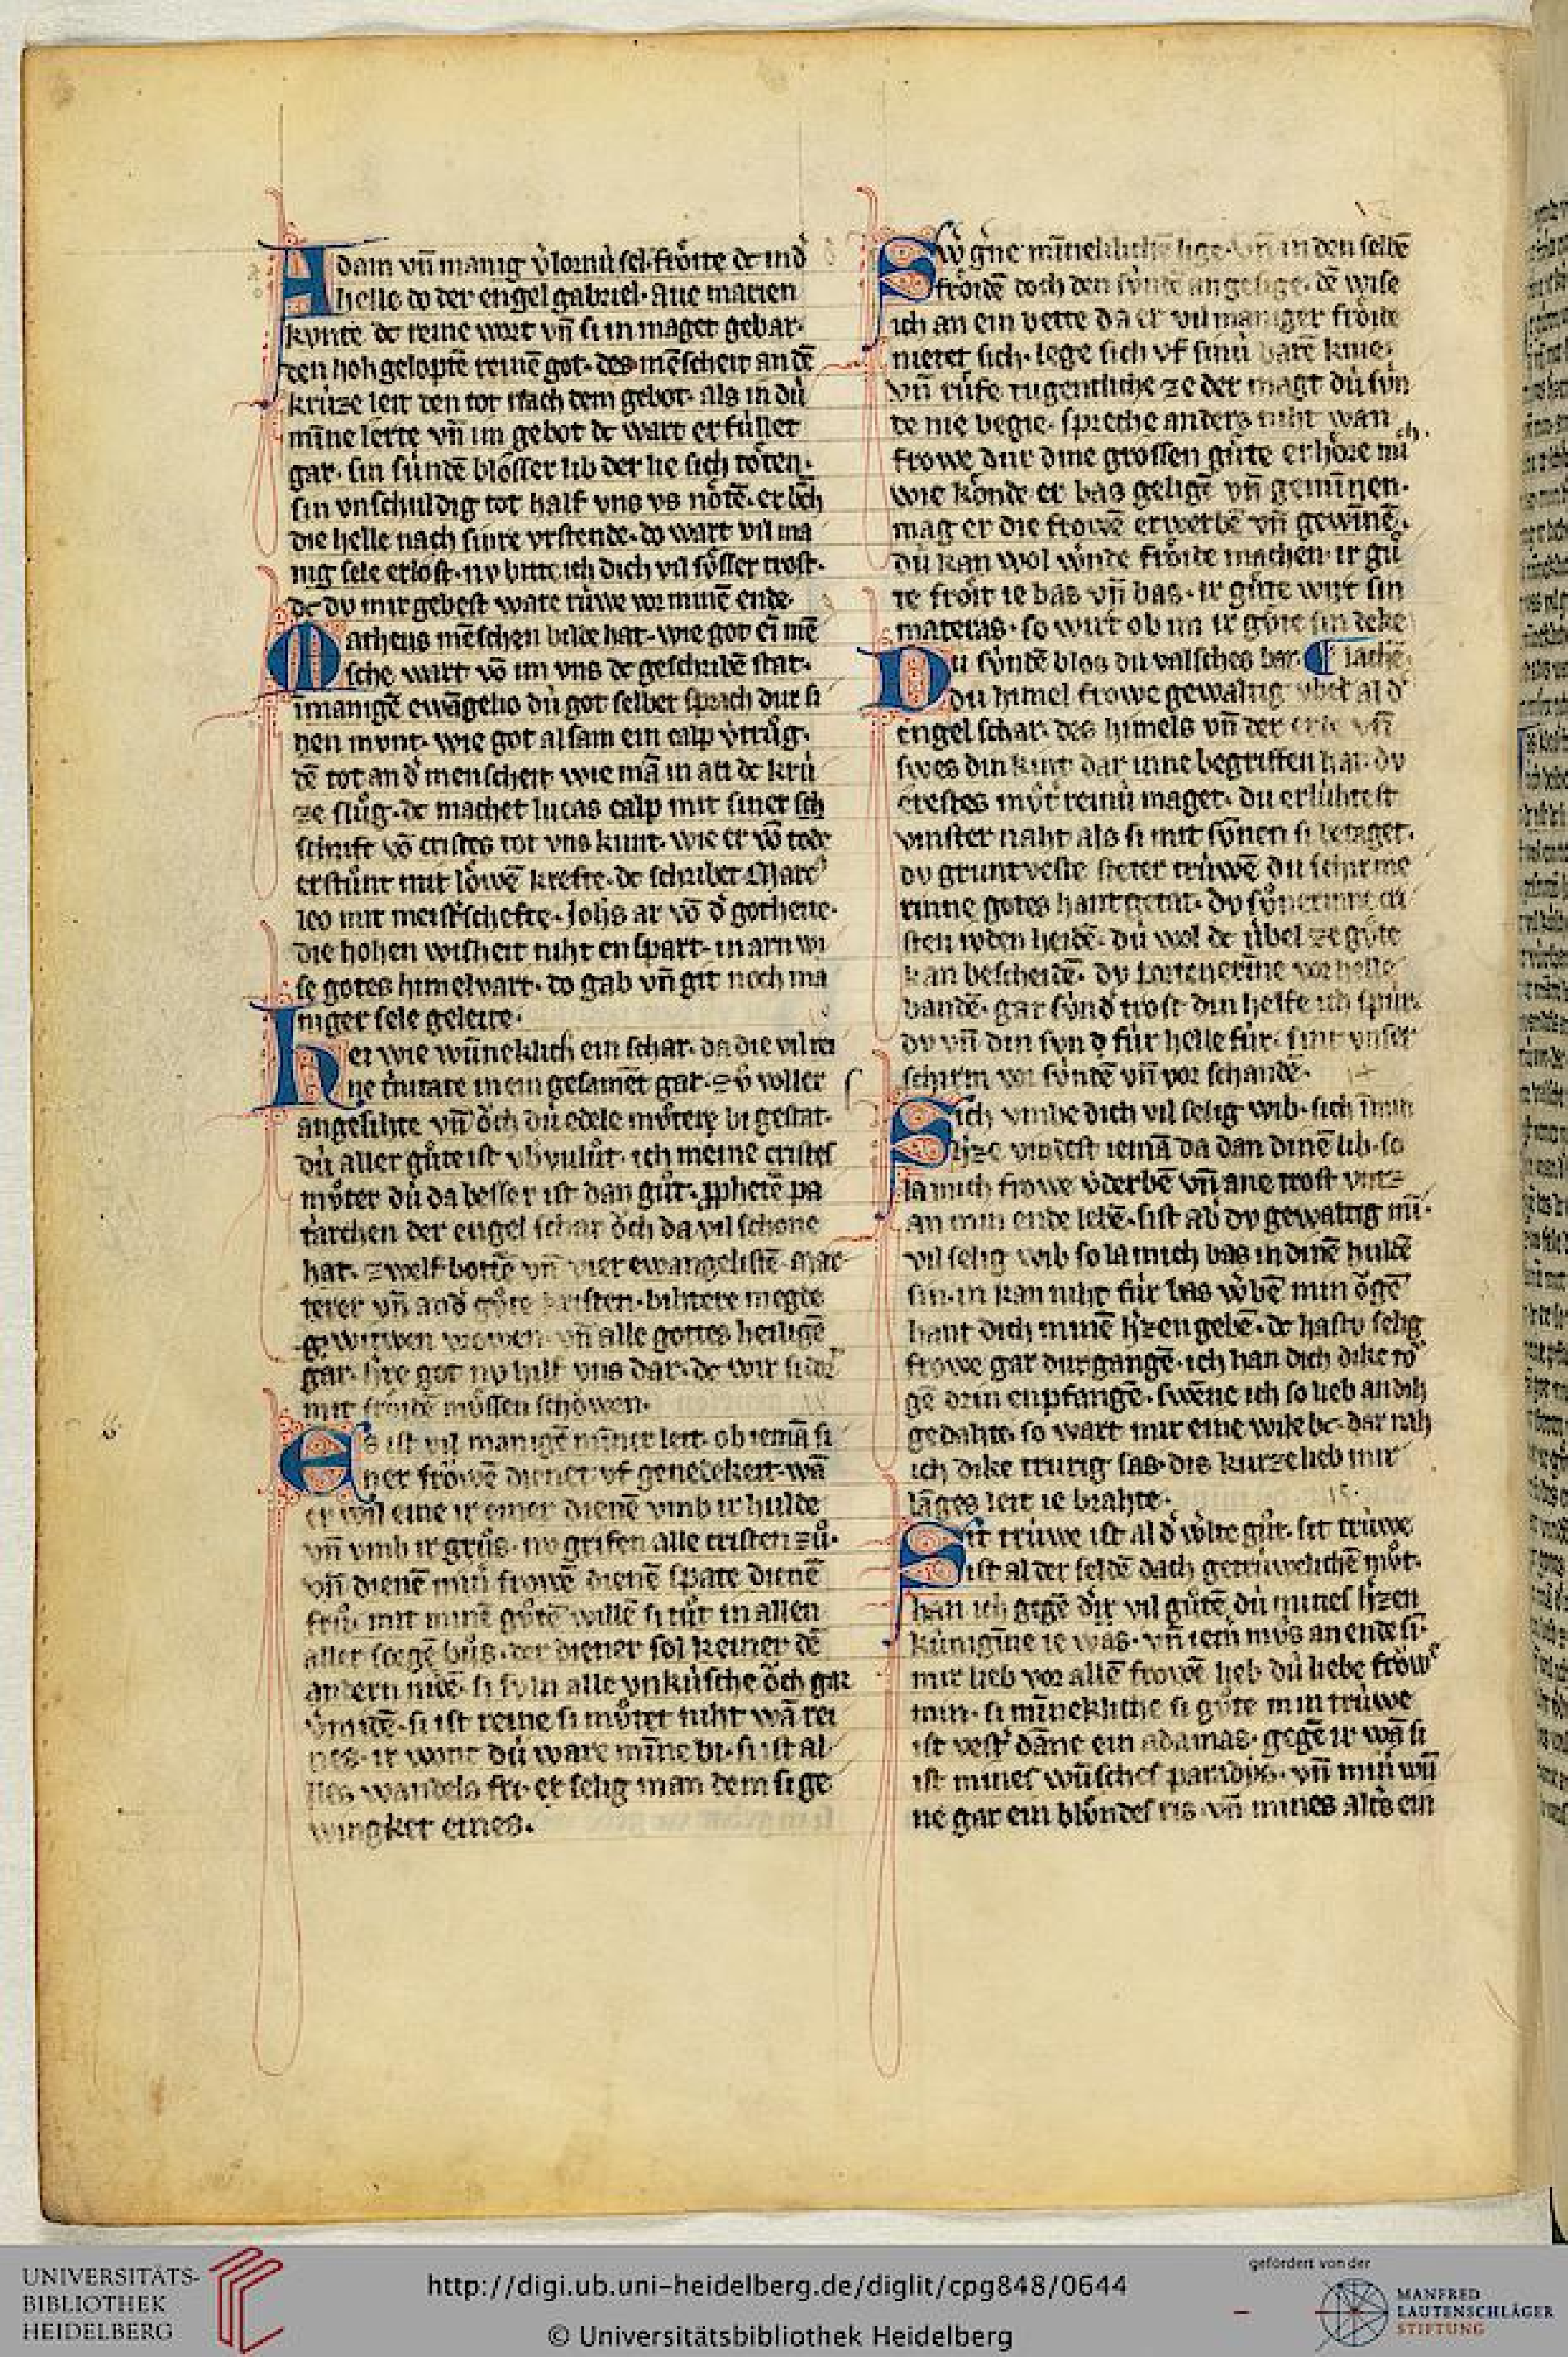 Adam vn̄ manig v͛lornú sel. froͤite dc in d͛
helle do der engel gabriel. Aue marien
kvnte. dc reine wort vn̄ si in maget gebar.
den hohgelopte͂ reine͂ got. des me͂scheit an de͂
krúze leit den tot nach dem gebot. als in dú
mı̄ne lerte vn̄ im gebot dc wart erfúllet
gar. sin súnde͂ blosser lib der lie sich toͤten.
sin vnschuldig tot half vns vs noͤte͂. er bͤch
die helle nach sinre vrstende. do wart vil ma
nig sele erlost. nv bitte ich dich vil soͤsser trost.
dc dv mir gebest ware rúwe vor mine͂ ende.
Matheus me͂schen bilde hat. wie got ei͂ me͂
sche wart vo͂ im vns dc geschribe͂ stat.
in manige͂ ewa͂gelio dú got selber sprach dur si
nen mvnt. wie got alsam ein calp v͛trůg.
de͂ tot an d͛ menscheit wie ma͂ in an dc krú
ze slůg. dc machet lucas calp mit siner sch
schrift vo͂ cristes tot vns kunt. wie er vo͂ tode
erstůnt mit loͤwe͂ krefte. dc schribet Marc͛
leo mit meist͛schefte. Joh̄s ar vo͂ d͛ gotheite.
die hohen wisheit niht en spart. in arn wi
se gotes himelvart. do gab vn̄ git noch ma
niger sele geleite.
Hei wie wu͂neklich ein schar. da die vil rei
ne trinitate in ein gesament gar. zů voller
angesihte vn̄ oͮch dú edele můter bi gestat.
dú aller gůte ist vb͛vlút. ich meine cristes
můter dú da besser ist dan gůt. ꝓphete͂ pa
tarchen der engel schar oͮch da vil schone
hat. zwelf botte͂ vn̄ vier ewangeliste͂. mar
terer vn̄ and͛ gůte kristen. bihtere megde
witwen vrowen. vn̄ alle gottes heilige͂
gar. h͛re got nv hilf vns dar. dc wir si da
mit froͤide͂ mússen schoͮwen.
Es ist vil manige͂ mı̄ner leit. ob iema͂ si
ner froͮwe͂ dienet vf genedekeit. wa͂
er wil eine ir einer diene͂ vmb ir hulde
vn̄ vmb ir grůs. nv grifen alle cristen zů.
vn̄ diene͂ min͛ frowe͂ diene͂ spate diene͂
frů. mit mine͂ gůte͂ wille͂ si tůt in allen
aller sorge͂ bůs. der diener sol keiner de͂
andern nide͂. si svln alle vnkúsche oͮch gar
v͛mide͂. si ist reine si můtet niht wa͂ rei
nes. ir wont dú ware mı̄ne bi. si ist al
lles wandels fri. er selig man dem si ge
wingket eines.
Sw͛ g͛ne mı̄nekliche͂ lige. vn̄ in den selbe͂
froͤide͂ doch den súnde͂ angesige. de͂ wise
ich an ein bette da er vil maniger froͤide
nietet sich. lege sich vf sinú bare͂ knie.
vn̄ růfe tugentliche ze der magt dú sún
de nie begie. spreche anders niht wan
frowe dur dine grossen gůte erhoͤre mich.
wie koͤnde er bas gelige͂ vn̄ gemi͂nen.
mag er die frowe͂ erwerbe͂ vn̄ gewı̄ne͂.
dú kan wol wnde froͤide machen. ir gů
te froͤit ie bas vn̄ bas. ir gůte wirt sin
materas. so wirt ob im ir gůte sin deke
Du súnde͂ blos du valsches bar. ¶ lache͂.
du himel frowe gewaltig vber al d͛
engel schar. des himels vn̄ der erde vn̄
swes din kint dar inne begriffen hat. dv
cristes můt͛ reinú maget. du erlúhtest
vinster naht als si mit sv̓nen si betaget.
dv gruntveste steter trúwe͂ du schirme
rinne gotes hantgetat. dv sůnerinne cri
sten iuden heide͂. dú wol dc úbel ze gůte
kan bescheide͂. dv portenerı̄ne vor helle
bande͂. gar súnd͛ trost din helfe ich spúr.
dv vn̄ din svn d͛ fúr helle fúr. sint vnser
schirm vor súnde͂ vn̄ vor schande͂.
Sich vmbe dich vil selig wib. sich in min
h͛ze vindest iema͂ da dan dine͂ lib. so
la mich frowe v͛derbe͂ vn̄ ane trost vntz
an min ende lebe͂. sist ab͛ dv gewaltig mi͂.
vil selig wib so la mich bas in dine͂ hulde͂
sin. in kan niht fúr bas w͛be͂ min oͮge͂
hant dich mine͂ h͛zen gebe͂. dc hastv selig
frowe gar durgange͂. ich han dich dike to͛
ge͂ drin enpfange͂. swe͂ne ich so lieb an dih
gedahte. so wart mir eine wile bc. dar nah
ich dike trurig sas. dis kurze lieb mir
la͂ges leit ie brahte.
Sit trúwe ist al d͛ w͛lte gůt. sit trúwe
ist al der selde͂ dach getrúweliche͂ můt.
han ich gege͂ dir vil gůte͂ dú mines h͛zen
kúnigı̄ne ie was. vn̄ iem͛ můs an ende si͂.
mir lieb vor alle͂ frowe͂ lieb dú liebe froͮwe
min. si mı̄nekliche si gůte min trúwe
ist vest͛ da͂ne ein adamas. gege͂ ir wa͂ si
ist mines wu͂sches paradys. vn̄ min͛ wu͂
ne gar ein blůndes ris. vn̄ mines alt͛s ein
UNIVERSITÄTS-
BIBLIOTHEK
HEIDELBERG
http://digi.ub.uni-heidelberg.de/diglit/cpg848/0644
© Universitätsbibliothek Heidelberg
gefördert von der
MANFRED
LAUTENSCHLÄGER
STIFTUNG